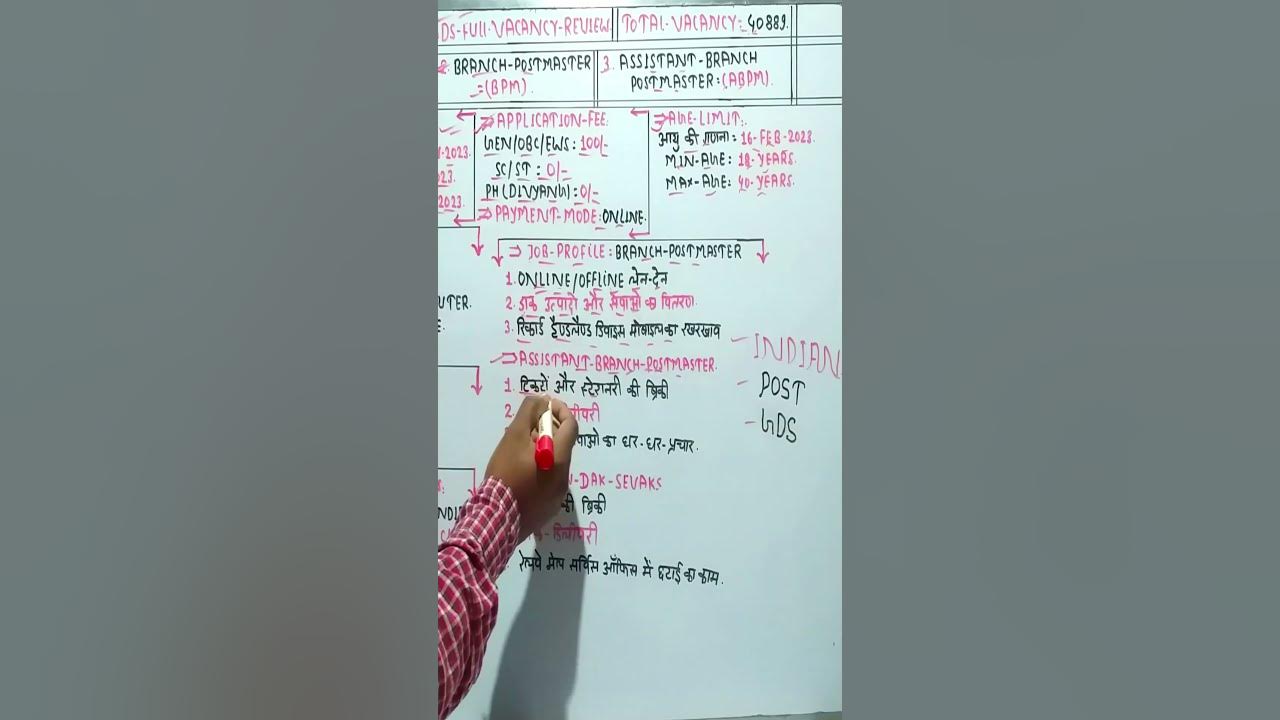 DS-FULL-VACANCY-REVIEW. TOTAL-VACANCY: 40889.
2. BRANCH-POSTMASTER =(BPM).
3. ASSISTANT-BRANCH POSTMASTER:(ABPM).
⇒ APPLICATION-FEE:
GEN/OBC/EWS: 100/-
SC/ST: 0/-
PH (DIVYANG): 0/-
⇒ PAYMENT-MODE: ONLINE.
-2023.
23.
2023.
⇒ AGE-LIMIT:.
आयु की गणना: 16-FEB-2023.
MIN-AGE: 18-YEARS.
MAX-AGE: 40-YEARS.
⇒ JOB-PROFILE: BRANCH-POSTMASTER
1. ONLINE/OFFLINE लेन-देन
2. डाक उत्पादो और सेवाओ का वितरण.
3. रिकार्ड हैण्डलैण्ड डिवाइस मोबाइल का रखरखाव
UTER.
E.
⇒ ASSISTANT-BRANCH-POSTMASTER.
1. टिकटों और स्टेशनरी की ब्रिकी
2. लीवरी
वाओ का घर-घर-प्रचार.
-DAK-SEVAKS
की ब्रिकी
- डिलीवरी
रेलवे मेल सर्विस ऑफिस में छटाई का काम.
- INDIAN
- POST
- GDS